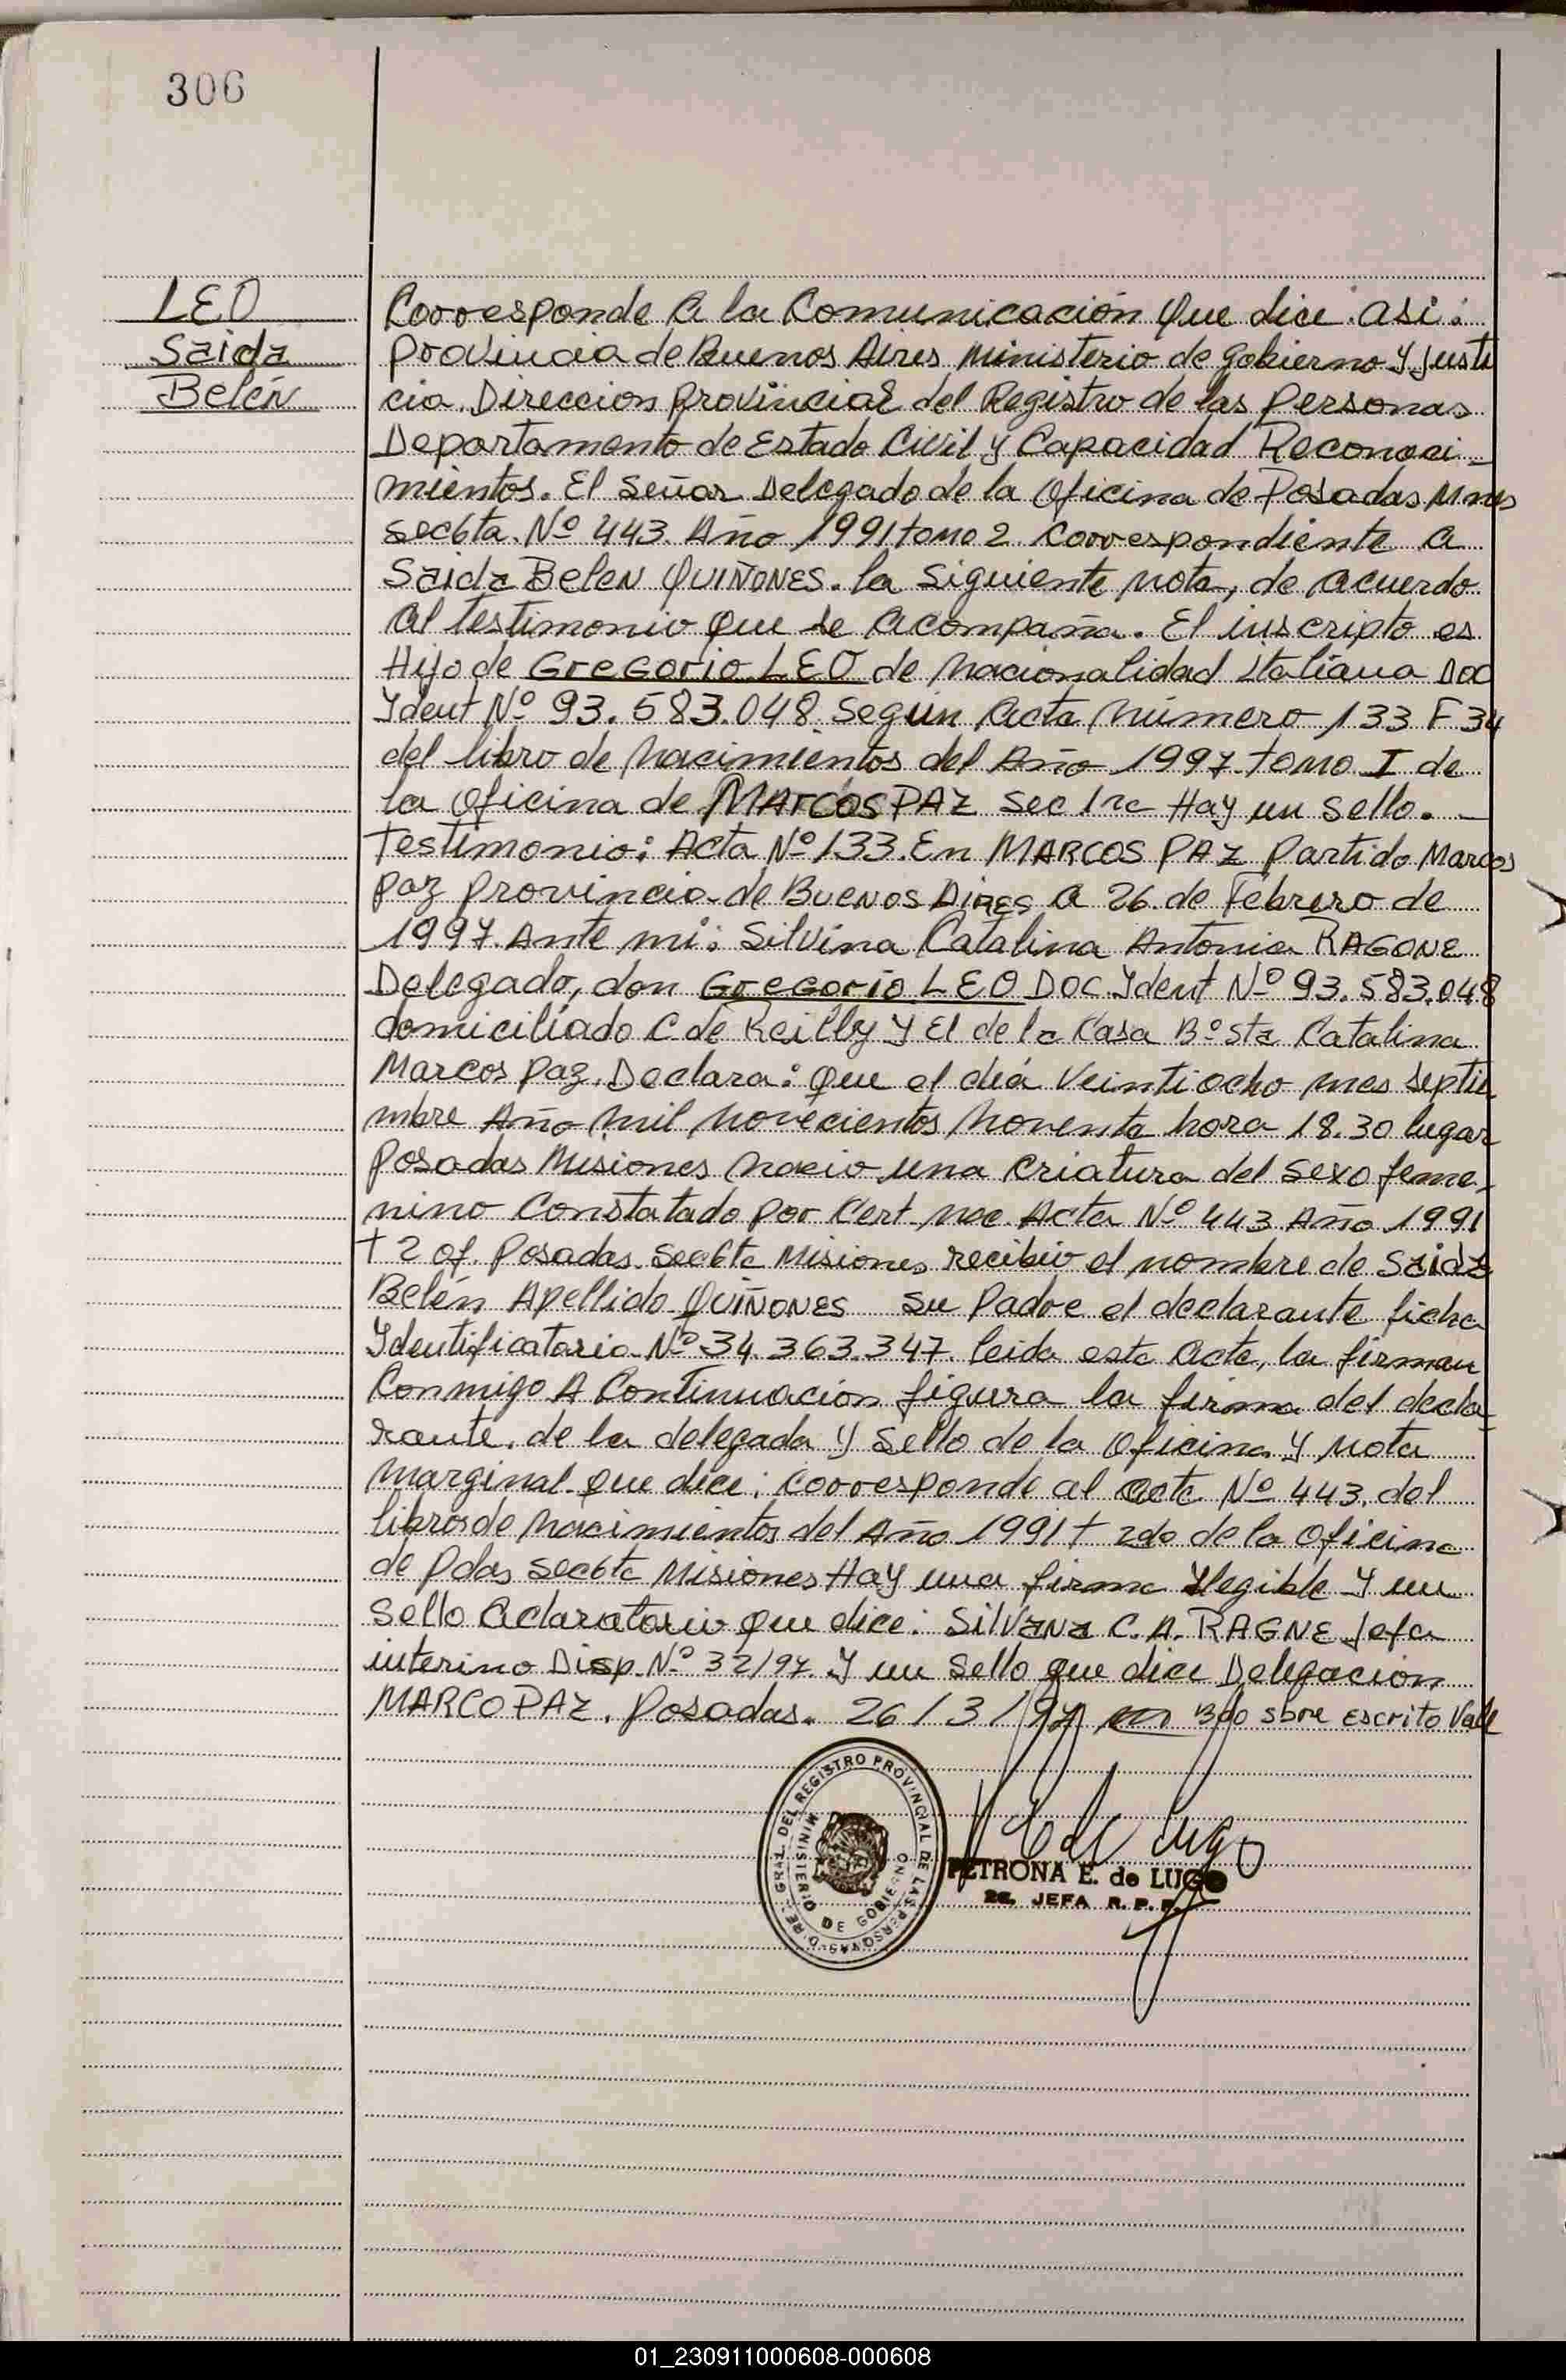 306
LEO
Saida
Belén
Corresponde a la Comunicación que dice asi:
provincia de Buenos Aires Ministerio de gobierno y Justi
cia. Direccion provincial del Registro de las personas
Departamento de Estado Civil y Capacidad Reconoci-
mientos. El Señor Delegado de la Oficina de Posadas Mnes
sec 6ta. Nº 443. Año 1991 tomo 2 correspondiente a
Saida Belen QUIÑONES. la siguiente nota, de acuerdo
al testimonio que se acompaña. El inscripto es
Hijo de Gregorio LEO de nacionalidad italiana Doc
Ident Nº 93.583.048 Según acta número 133 F 34
del libro de nacimientos del Año 1997 tomo I de
la oficina de MARCOS PAZ sec 1ra Hay un sello. -
Testimonio: Acta Nº 133. En MARCOS PAZ Partido Marcos
paz provincia de Buenos Aires a 26 de Febrero de
1997. Ante mi: Silvina Catalina Antonia RAGONE
Delegado, don Gregorio LEO Doc. Ident Nº 93.583.048
domiciliado C de Reilly y El de la Casa Bº Sta Catalina
Marcos paz. Declara: que el dia veintiocho mes septie
mbre Año mil novecientos noventa hora 18.30 lugar
posadas Misiones nacio una criatura del sexo feme-
nino Constatado por Cert. nac. Acta Nº 443 Año 1991
t 2 of. Posadas. Sec 6ta Misiones recibio el nombre de Saida
Belén Apellido QUIÑONES su padre el declarante ficha
Identificatoria Nº 34.363.347. leida esta acta, la firman
Conmigo A Continuación figura la firma del decla
rante, de la delegada y sello de la oficina y nota
marginal que dice: corresponde al acta Nº 443. del
libros de nacimientos del Año 1991 t 2do de la oficina
de Pdas sec 6ta Misiones Hay una firma Ilegible y un
Sello aclaratorio que dice: SILVANA C. A. RAGNE Jefa
interino Disp. Nº 32/97. y un sello que dice Delegación
MARCO PAZ. Posadas. 26/3/97 sbre escrito Vale
DIREC. GRAL. DEL REGISTRO PROVINCIAL DE LAS PERSONAS
MINISTERIO DE GOBIERNO
PETRONA E. de LUGO
JEFA R. P. P.
01_230911000608-000608